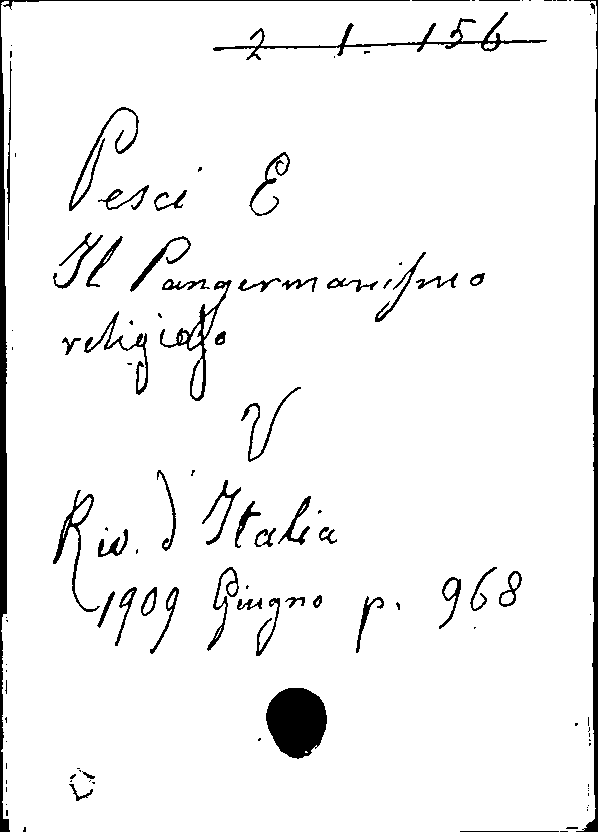 2 1. 156
Pesci E
Il Pangermanismo
religioso
V
Riv. d'Italia
1909 Giugno p. 968